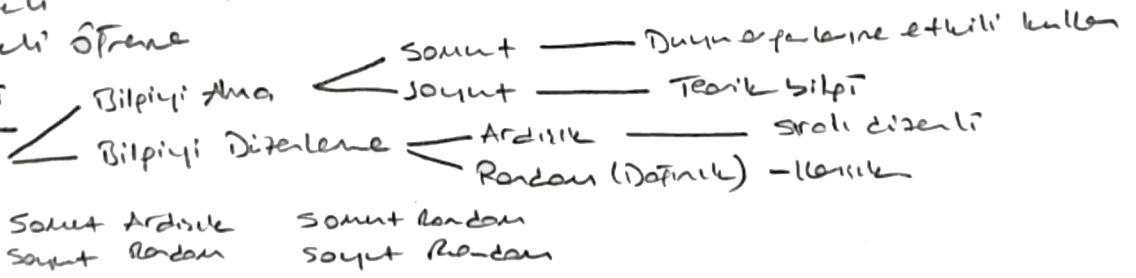 eli Öğrenme
Somut — Duyu organlarını etkili kullan
Bilgiyi Alma
Soyut — Teorik bilgi
Bilgiyi Düzenleme
Ardışık — sıralı düzenli
Random (Dağınık) – Karışık
Somut Ardışık Somut Random
Soyut Random Soyut Random